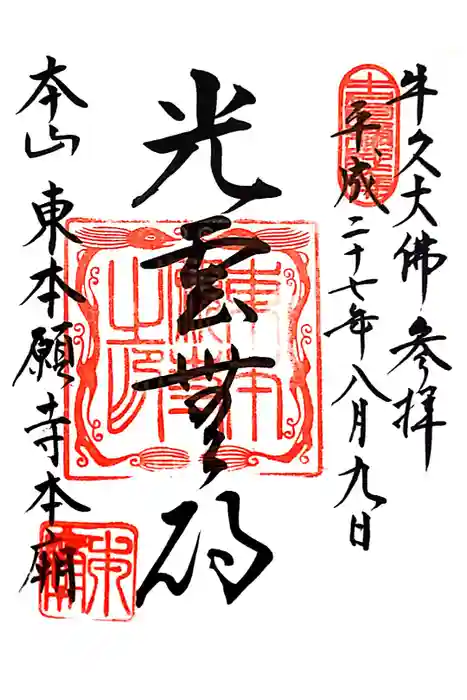 牛久大佛参拝
平成二十七年八月九日
光雲無碍
本山東本願寺本廟